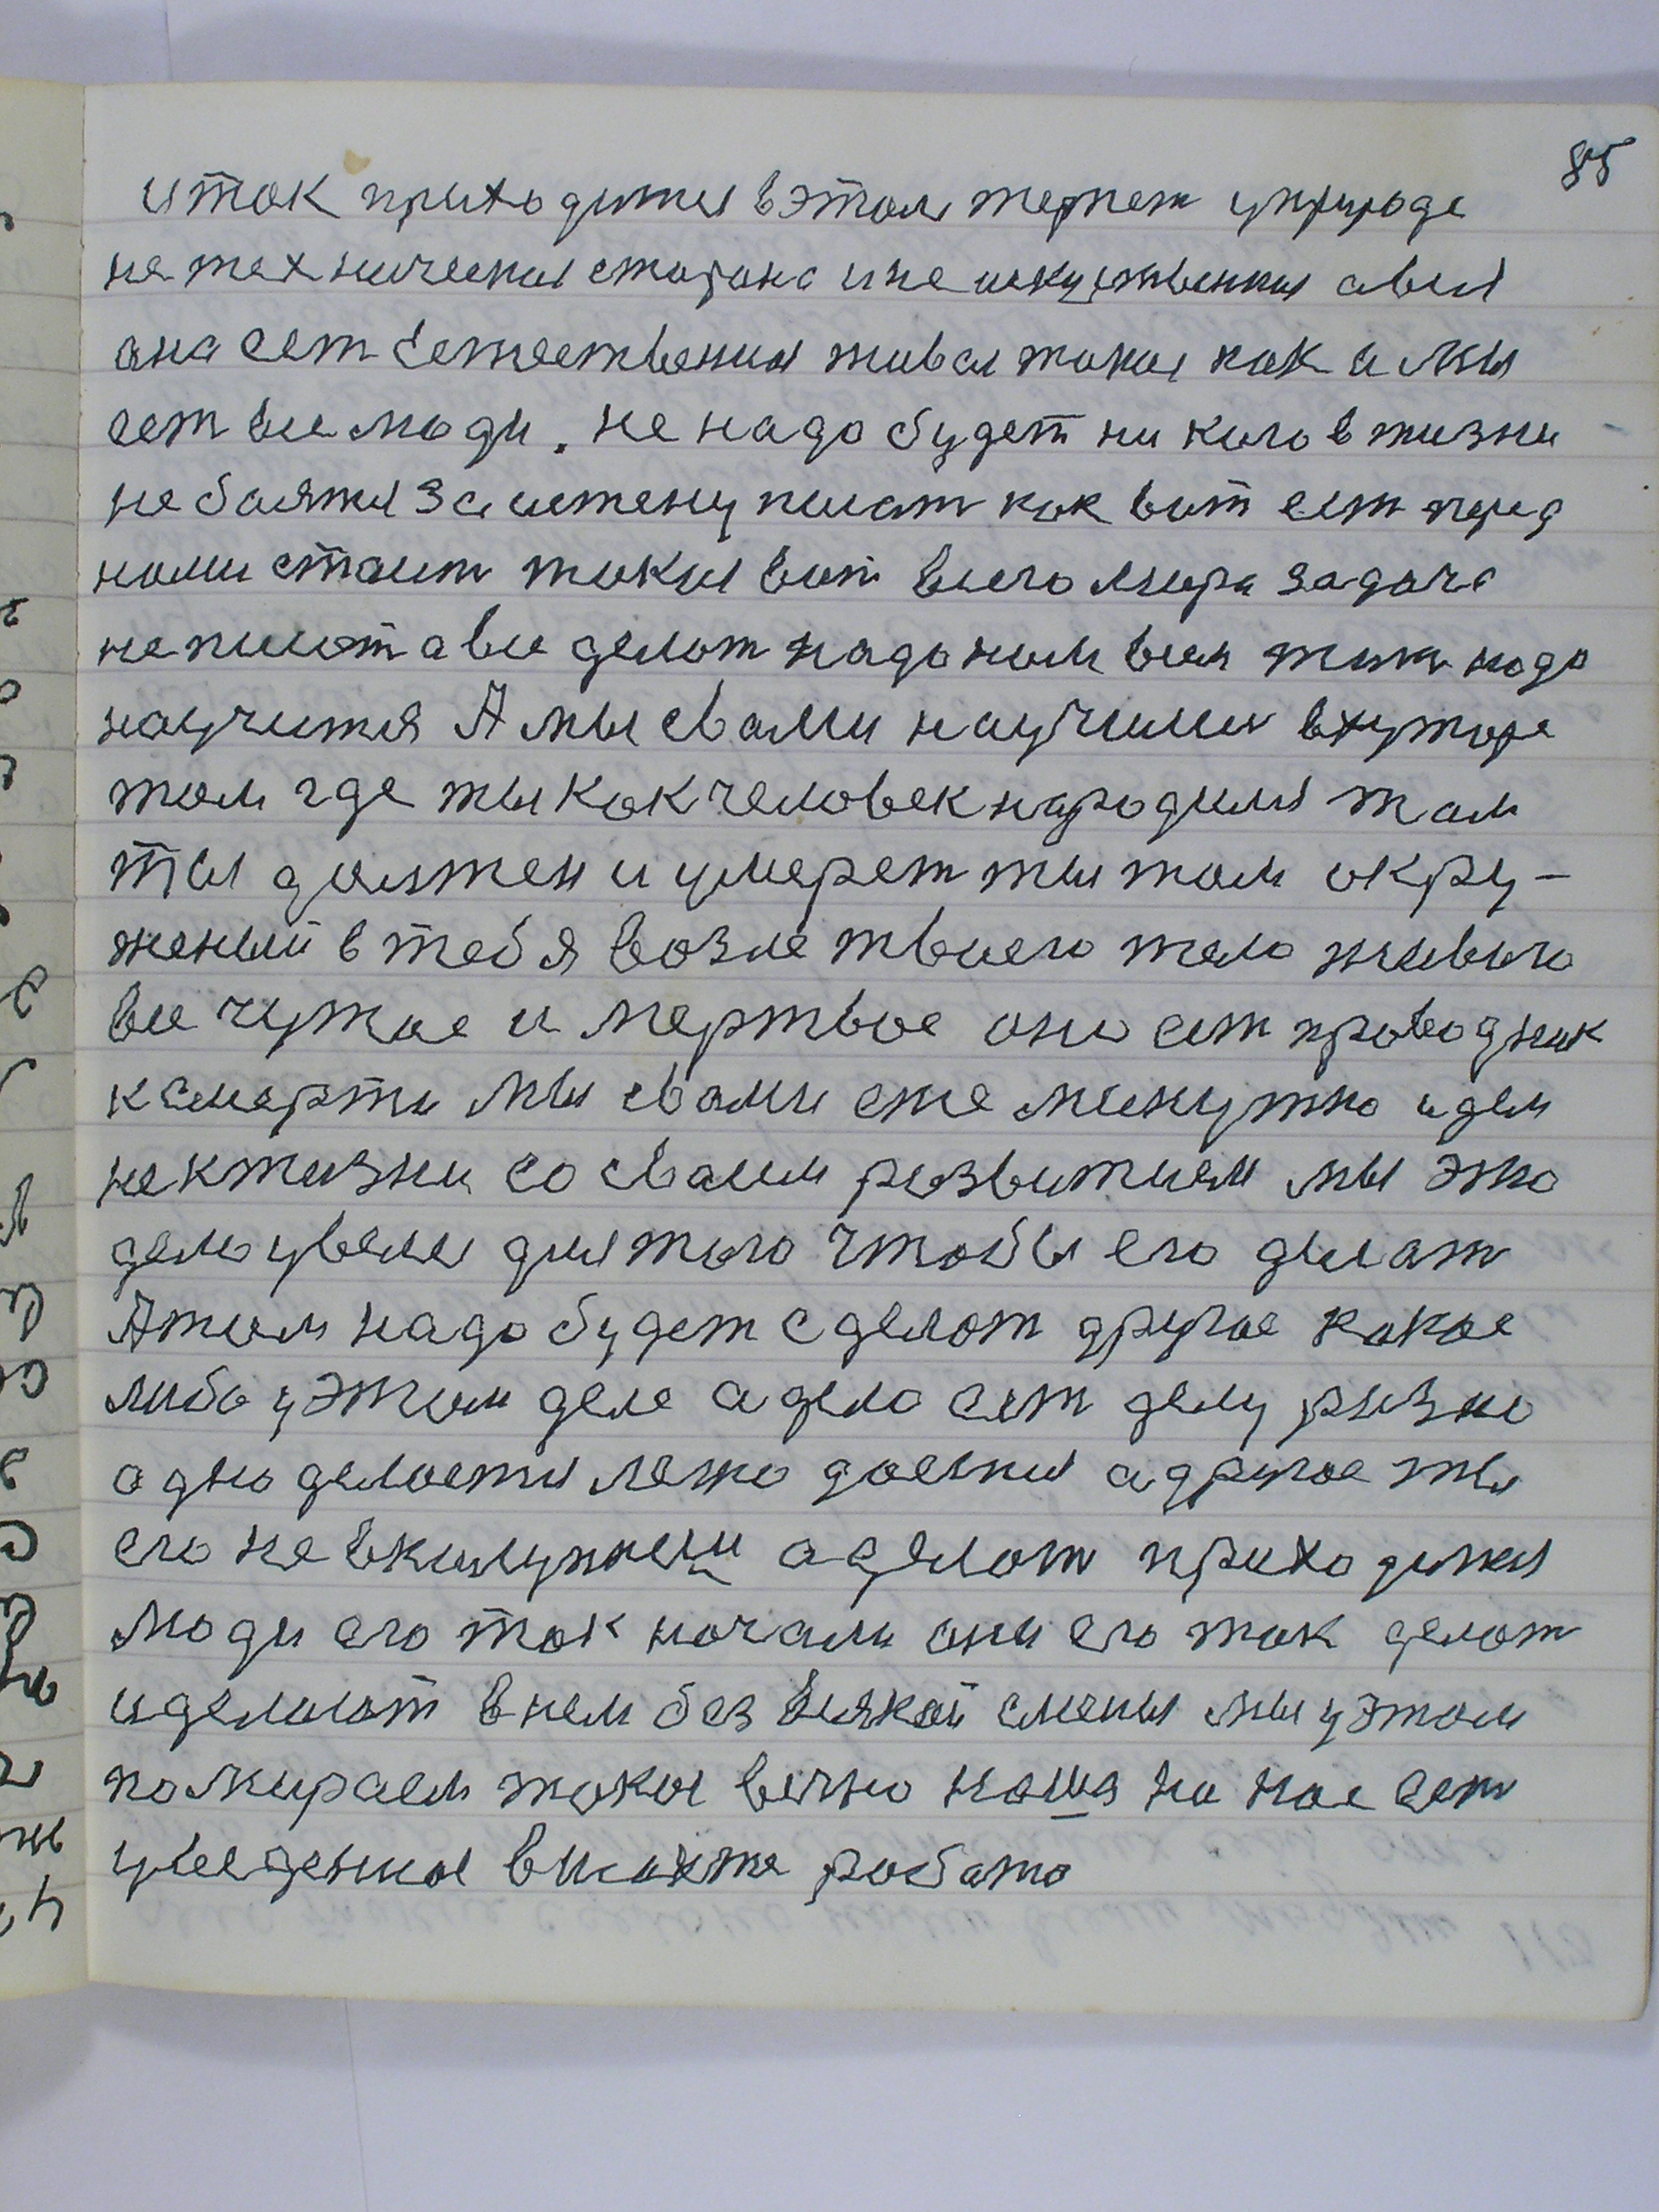 85
и так приходится в этом терпет у природе
не техническая старана и не искуственая а вся
ана ест естественая живая такая как и мы
ест все люди. не надо будет ни кого в жизни
не баятся за истену писат как вот ест перед
нами стаит такая вот всего мира задача
не писат а все делат надо нам всем так надо
научится А мы свами научимся в хуторе
там где ты как человек народился там
ты должен и умерет ты там окру-
женый в тебя возле твоего тело живого
все чужое и мертвое оно ест проводник
к смерти мы свами еже минутно идем
не к жизни со сваим развитием мы это
дело увели для того чтобы его делат
А там надо будет сделат другое какое
либо у этом деле а дело ест делу рызно
одно делается легко доступ а другое ты
его не вкалупнеш а делат приходится
люди его так начали они его так делат
и делают в нем без всякой смены мы у этом
помираем такая вечно наша на нас ест
уведеная в шахте работа